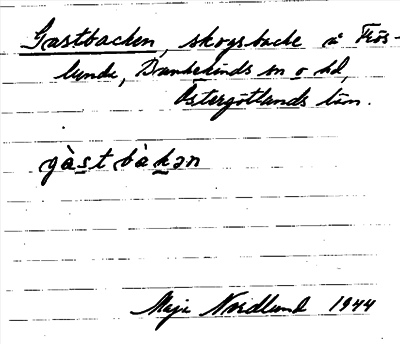 Gastbacken, skogsbacke å Frös-
lunda, Dannekinds sn o hd,
Östergötlands län.
gàst bàkən
Maja Nordlund 1944